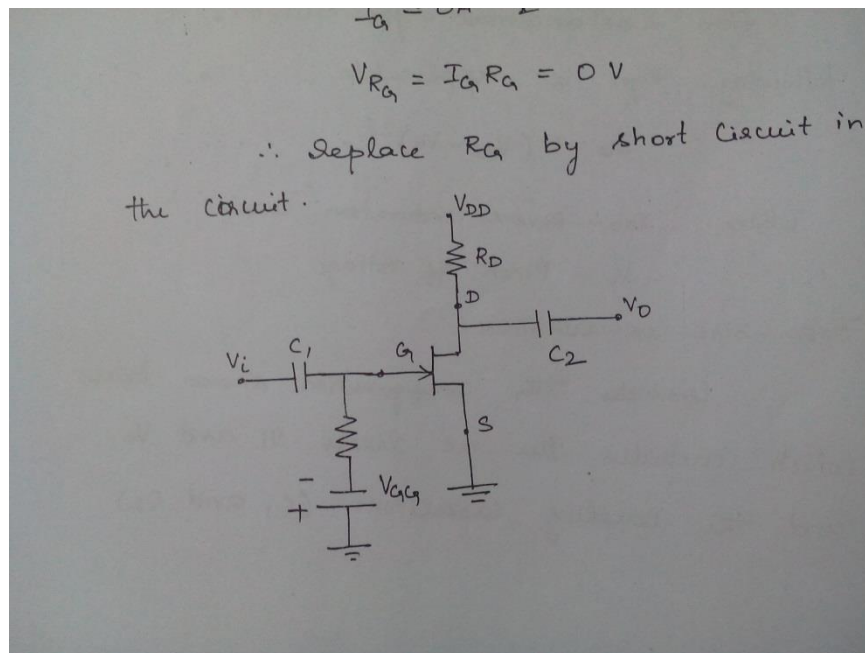 V_RG = I_G R_G = 0 V
∴ replace RG by short circuit in
the circuit.
VDD
RD
D
VO
C2
Vi
C1
G
S
-
VGG
+